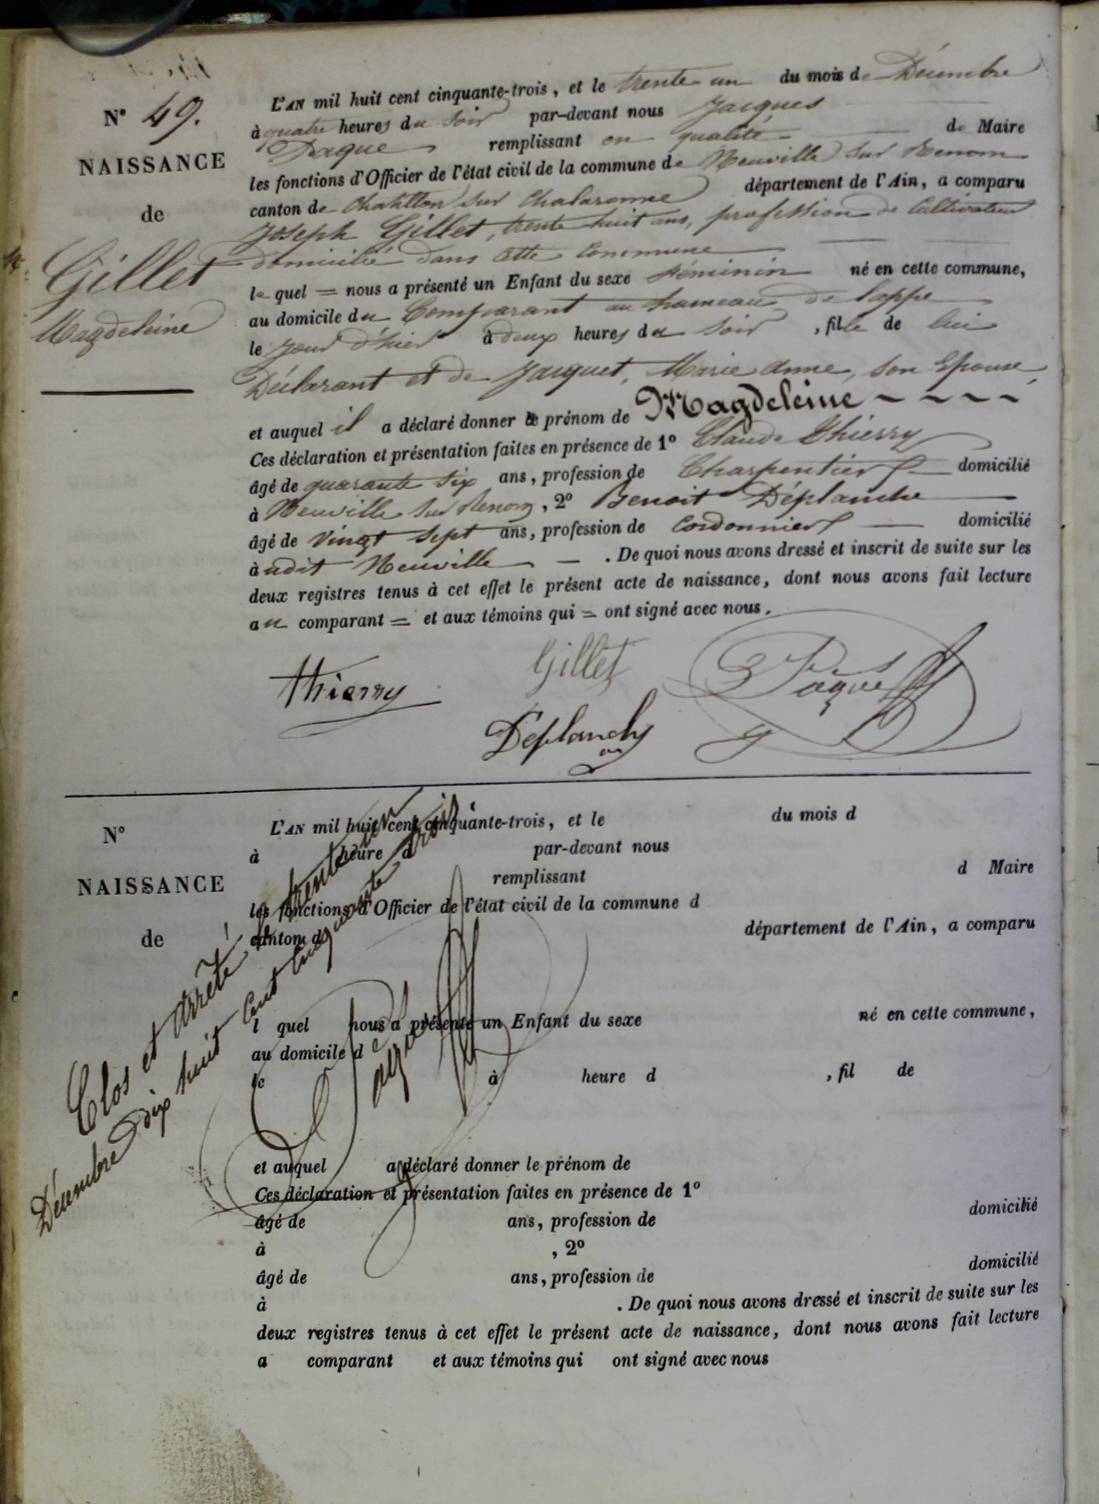 N° 49.
NAISSANCE
de
Gillet
Magdeleine
L'AN mil huit cent cinquante-trois, et le trente un du mois de Décembre
à quatre heures du soir par-devant nous Jacques
Paque remplissant en qualité de Maire
les fonctions d'Officier de l'état civil de la commune de Neuville sur Renom
canton de Chatillon sur Chalaronne département de l'Ain, a comparu
Joseph Gillet, trente huit ans, profession de Cultivateur
domicilié dans cette Commune
le quel = nous a présenté un Enfant du sexe féminin né en cette commune,
au domicile du Comparant au hameau de Lappe
le jour d'hier à deux heures du soir, fille de lui
Déclarant et de Jacquet, Marie Anne, son Epouse,
et auquel il a déclaré donner le prénom de Magdeleine
Ces déclaration et présentation faites en présence de 1° Claude Thierry
âgé de quarante six ans, profession de Charpentier domicilié
à Neuville sur Renom, 2° Benoit Déplanche
âgé de vingt sept ans, profession de Cordonnier domicilié
à udit Neuville . De quoi nous avons dressé et inscrit de suite sur les
deux registres tenus à cet effet le présent acte de naissance, dont nous avons fait lecture
au comparant = et aux témoins qui = ont signé avec nous.
Thierry Gillet Paque
Déplanche
N°
NAISSANCE
de
L'AN mil huit cent cinquante-trois, et le du mois d
à heure d par-devant nous
remplissant d Maire
les fonctions d'Officier de l'état civil de la commune d
canton d département de l'Ain, a comparu
l quel nous a présenté un Enfant du sexe né en cette commune,
au domicile d
le à heure d , fil de
et auquel a déclaré donner le prénom de
Ces déclaration et présentation faites en présence de 1°
âgé de ans, profession de domicilié
à , 2°
âgé de ans, profession de domicilié
à . De quoi nous avons dressé et inscrit de suite sur les
deux registres tenus à cet effet le présent acte de naissance, dont nous avons fait lecture
a comparant et aux témoins qui ont signé avec nous
Clos et arrêté le trente un
Décembre dix huit cent cinquante trois.
Paque